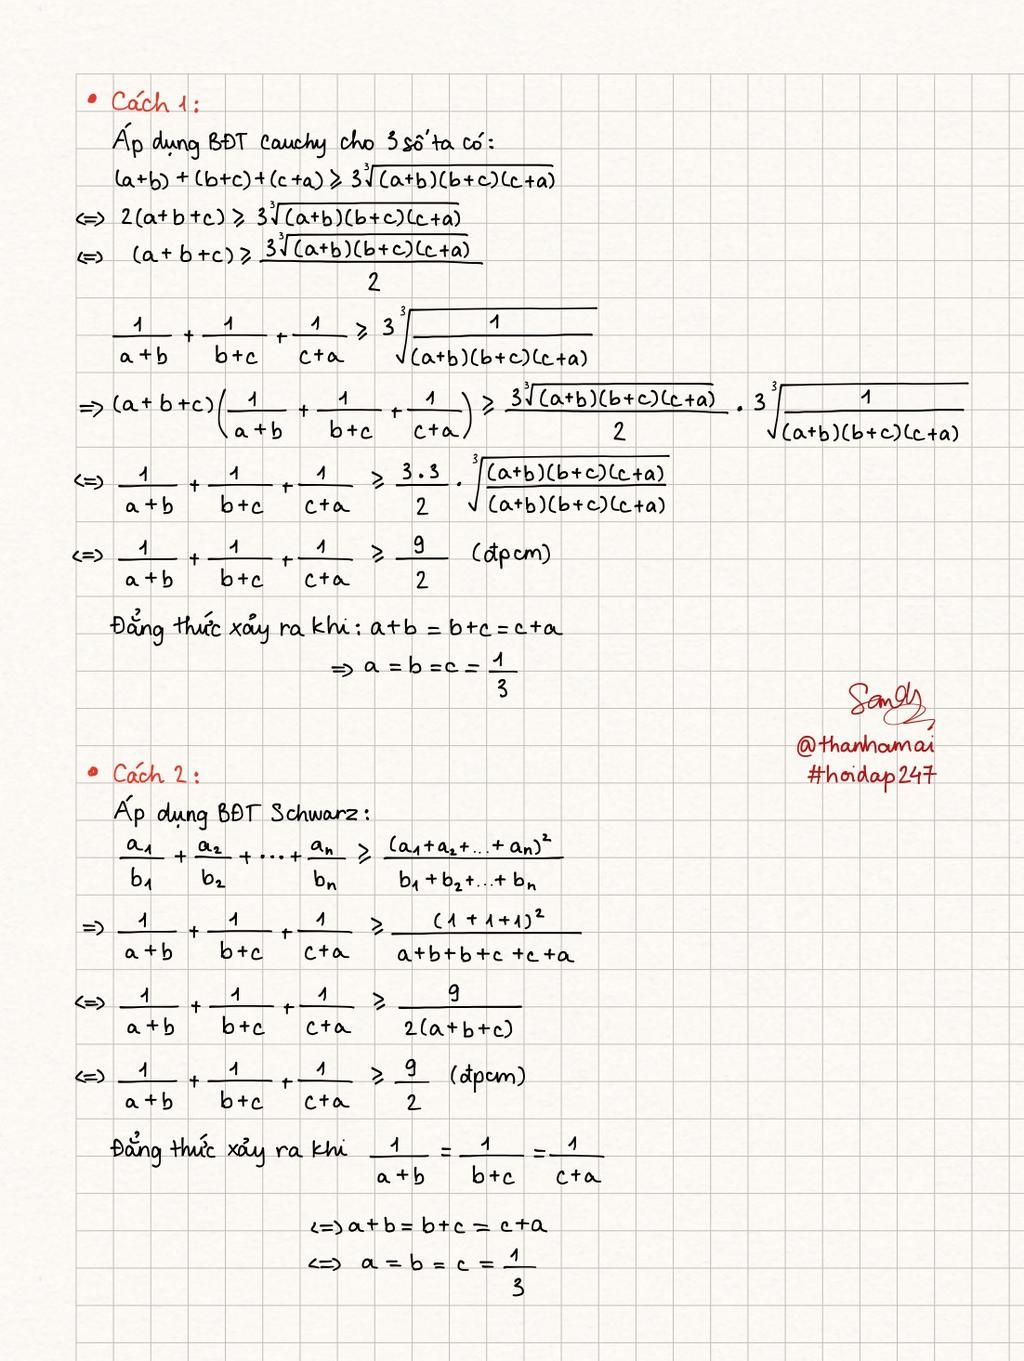 • Cách 1:
Áp dụng BĐT Cauchy cho 3 số ta có:
(a+b) + (b+c) + (c+a) ⩾ 3∛((a+b)(b+c)(c+a))
<=> 2(a+b+c) ⩾ 3∛((a+b)(b+c)(c+a))
<=> (a+b+c) ⩾ 3∛((a+b)(b+c)(c+a)) / 2
1/(a+b) + 1/(b+c) + 1/(c+a) ⩾ 3∛(1/((a+b)(b+c)(c+a)))
=> (a+b+c)(1/(a+b) + 1/(b+c) + 1/(c+a)) ⩾ 3∛((a+b)(b+c)(c+a)) / 2 . 3∛(1/((a+b)(b+c)(c+a)))
<=> 1/(a+b) + 1/(b+c) + 1/(c+a) ⩾ 3.3/2 . ∛((a+b)(b+c)(c+a)/(a+b)(b+c)(c+a))
<=> 1/(a+b) + 1/(b+c) + 1/(c+a) ⩾ 9/2 (đpcm)
Đẳng thức xảy ra khi: a+b = b+c = c+a
=> a = b = c = 1/3
Sandy
@thanhamai
#hoidap247
• Cách 2:
Áp dụng BĐT Schwarz:
a₁/b₁ + a₂/b₂ + ... + aₙ/bₙ ⩾ (a₁+a₂+...+aₙ)²/(b₁+b₂+...+bₙ)
=> 1/(a+b) + 1/(b+c) + 1/(c+a) ⩾ (1+1+1)²/(a+b+b+c+c+a)
<=> 1/(a+b) + 1/(b+c) + 1/(c+a) ⩾ 9/(2(a+b+c))
<=> 1/(a+b) + 1/(b+c) + 1/(c+a) ⩾ 9/2 (đpcm)
Đẳng thức xảy ra khi 1/(a+b) = 1/(b+c) = 1/(c+a)
<=> a+b = b+c = c+a
<=> a = b = c = 1/3